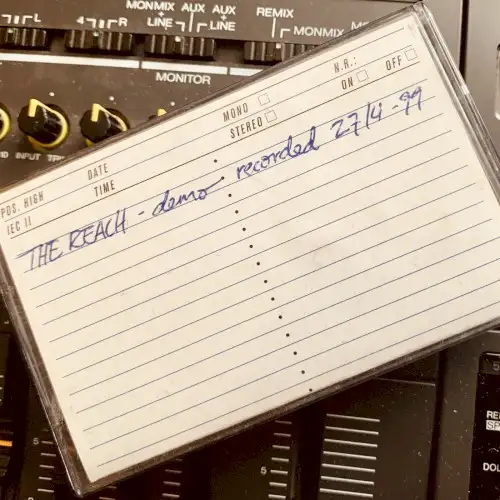 L 4 R
MONMIX AUX AUX
LINE LINE
REMIX
MONMIX
MONITOR
INPUT
MONO
STEREO
N.R.:
ON OFF
DATE
TIME
POS. HIGH
IEC II
THE REACH - demo recorded 27/4-99
5
5
5